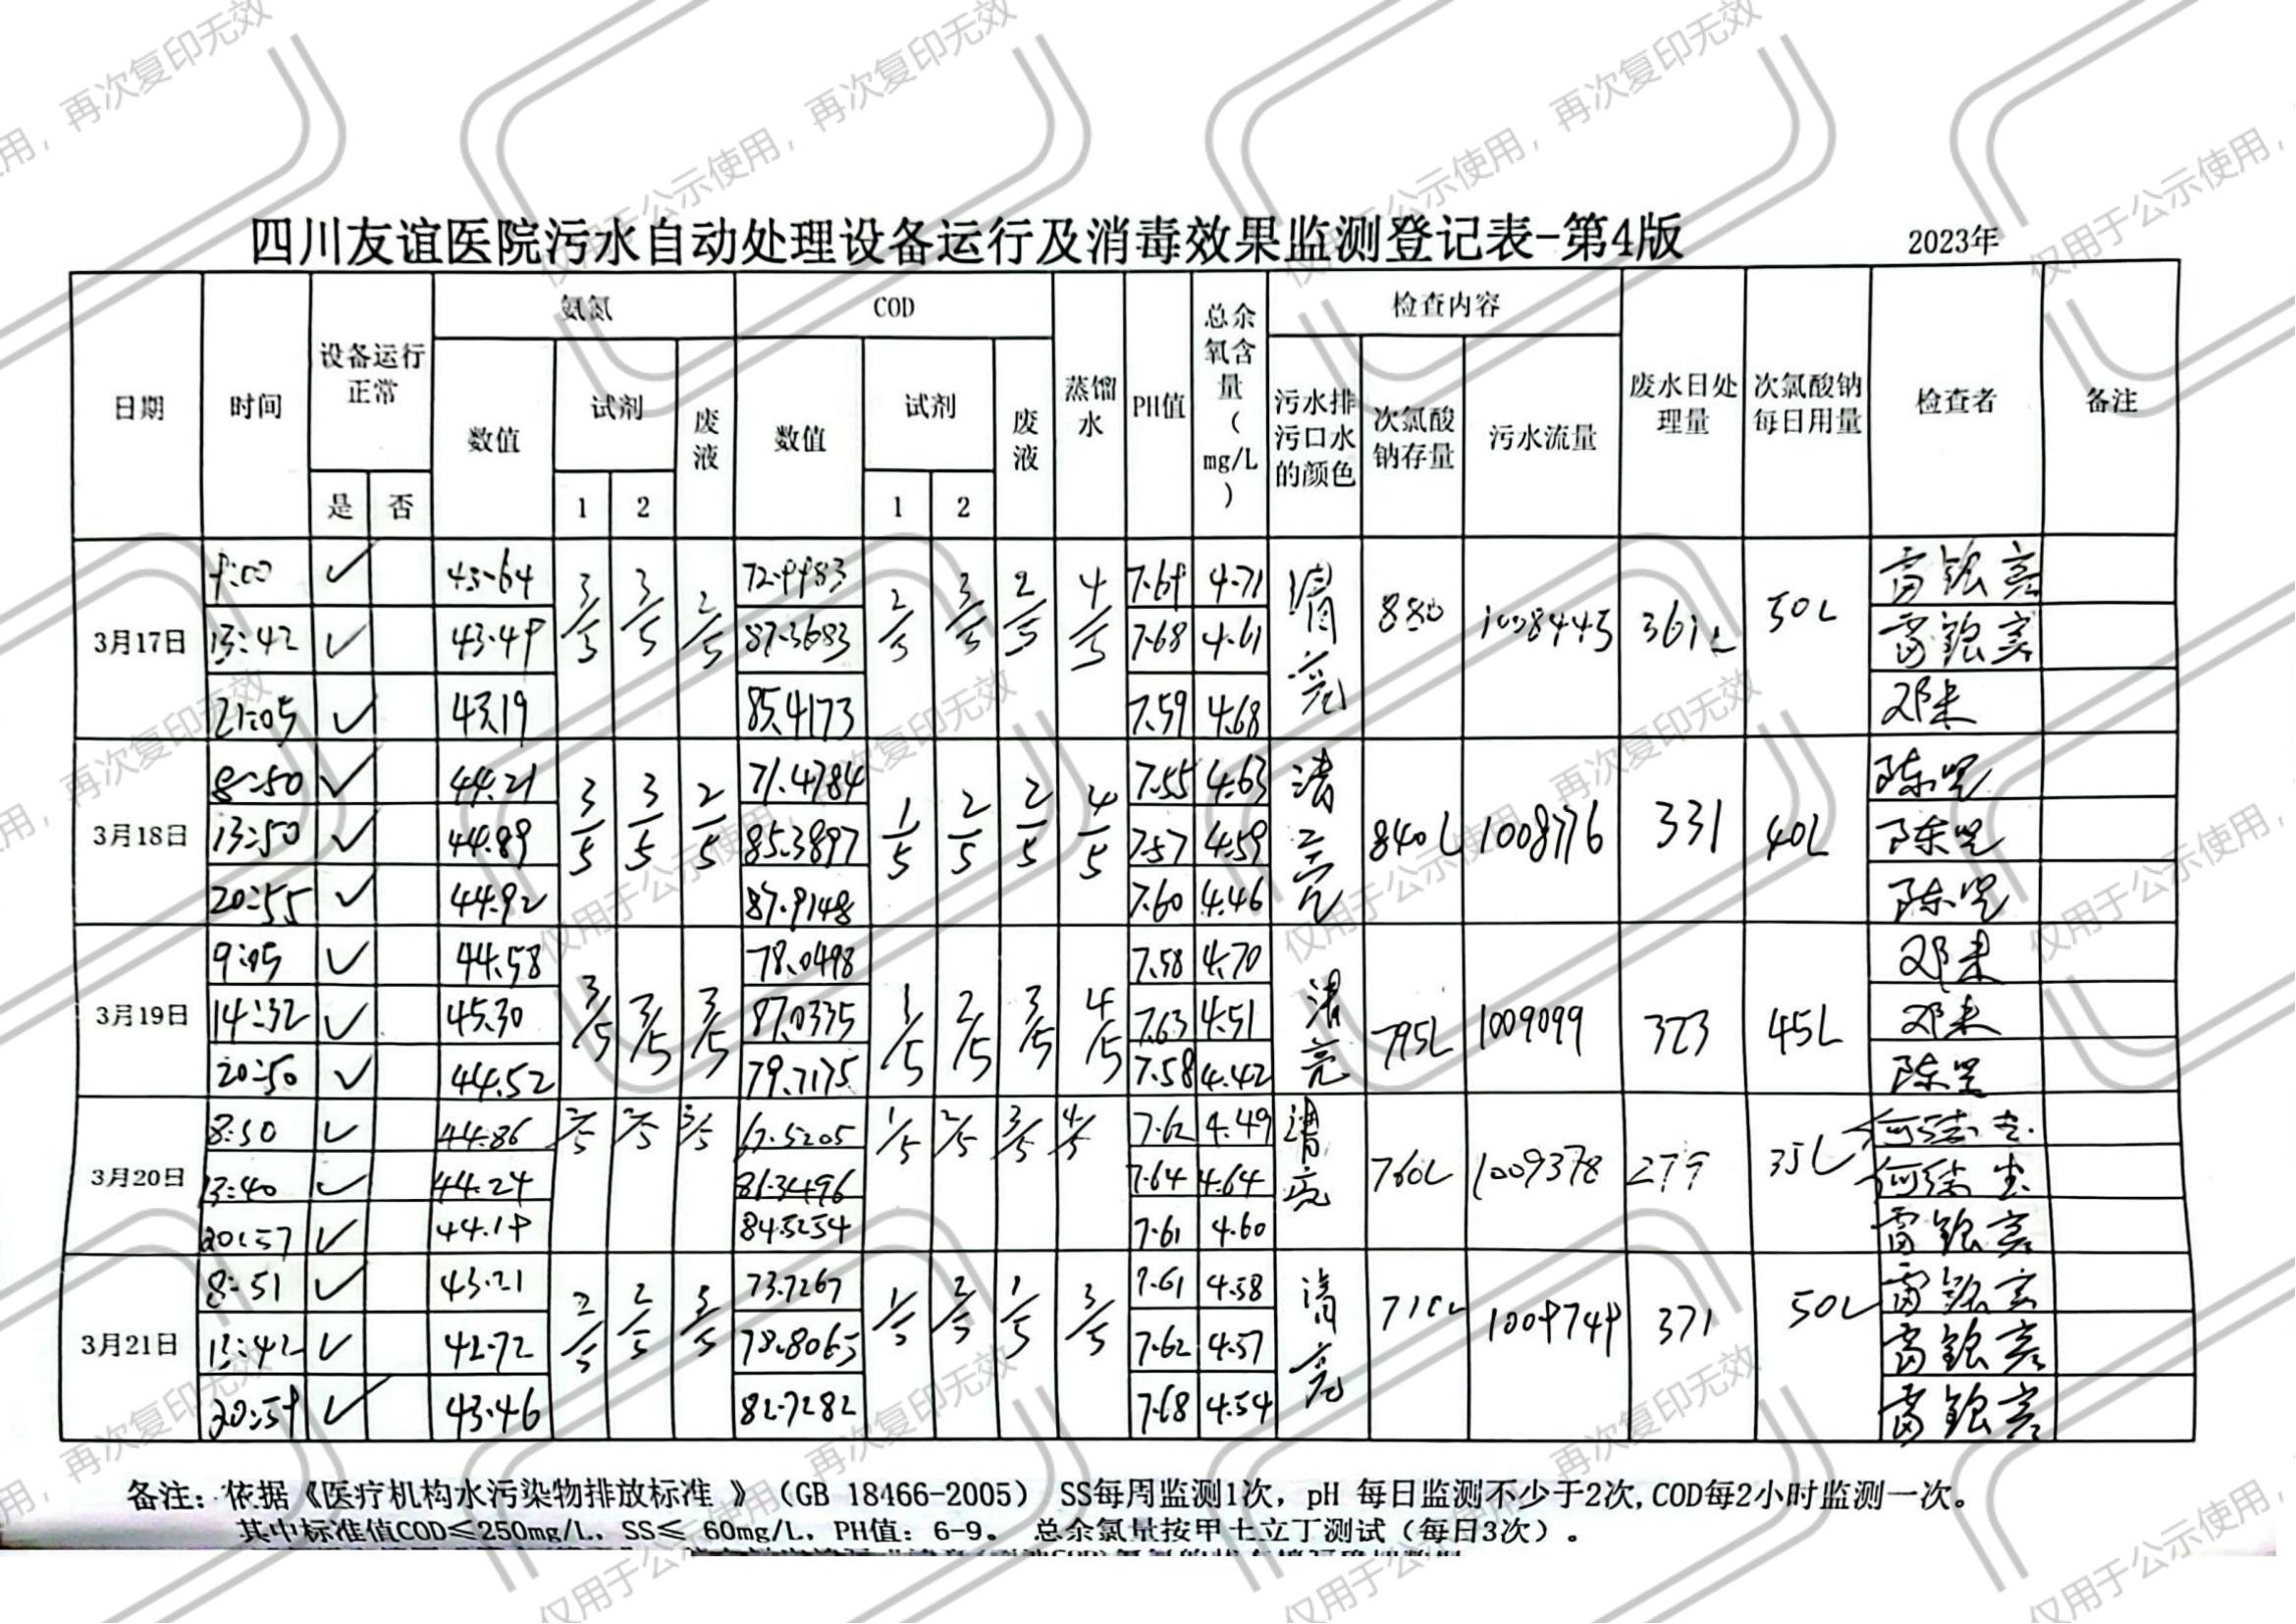 四川友谊医院污水自动处理设备运行及消毒效果监测登记表-第4版 2023年
日期 时间 设备运行正常 是 否 氨氮 数值 试剂 1 2 废液 COD 数值 试剂 1 2 废液 蒸馏水 PH值 总余氧含量(mg/L) 检查内容 污水排污口水的颜色 次氯酸钠存量 污水流量 废水日处理量 次氯酸钠每日用量 检查者 备注
3月17日 清亮 880 1008445 361L 50L
9:00 ✓ 43.64 3/5 3/5 2/5 72.9983 2/5 3/5 2/5 4/5 7.69 4.71
13:42 ✓ 43.49 87.3683 7.68 4.61
21:05 ✓ 43.19 85.4173 7.59 4.68 邓未
3月18日 清亮 840L 1008776 331 40L
8:50 ✓ 44.21 3/5 3/5 2/5 71.4784 1/5 2/5 2/5 4/5 7.55 4.63
13:50 ✓ 44.89 85.3897 7.57 4.59
20:55 ✓ 44.92 87.9148 7.60 4.46
3月19日 清亮 795L 1009099 323 45L
9:05 ✓ 44.58 3/5 3/5 3/5 78.0498 1/5 2/5 3/5 4/5 7.58 4.70 邓未
14:32 ✓ 45.30 87.0335 7.63 4.51 邓未
20:50 ✓ 44.52 79.7175 7.58 4.42
3月20日 清亮 760L 1009378 279 35L
8:50 ✓ 44.86 2/5 2/5 3/5 67.5205 1/5 2/5 3/5 4/5 7.62 4.49
13:40 ✓ 44.24 86.3496 7.64 4.64
20:57 ✓ 44.19 84.5254 7.61 4.60
3月21日 清亮 710L 1009749 371 50L
8:51 ✓ 43.21 2/5 2/5 3/5 73.7267 1/5 2/5 1/5 3/5 7.61 4.58
13:42 ✓ 42.72 78.8065 7.62 4.57
20:59 ✓ 43.46 82.7282 7.68 4.54
备注：依据《医疗机构水污染物排放标准 》（GB 18466-2005） SS每周监测1次，pH 每日监测不少于2次,COD每2小时监测一次。
其中标准值COD≤250mg/L，SS≤ 60mg/L，PH值：6-9。 总余氯量按甲土立丁测试（每日3次）。
仅用于公示使用，再次复印无效